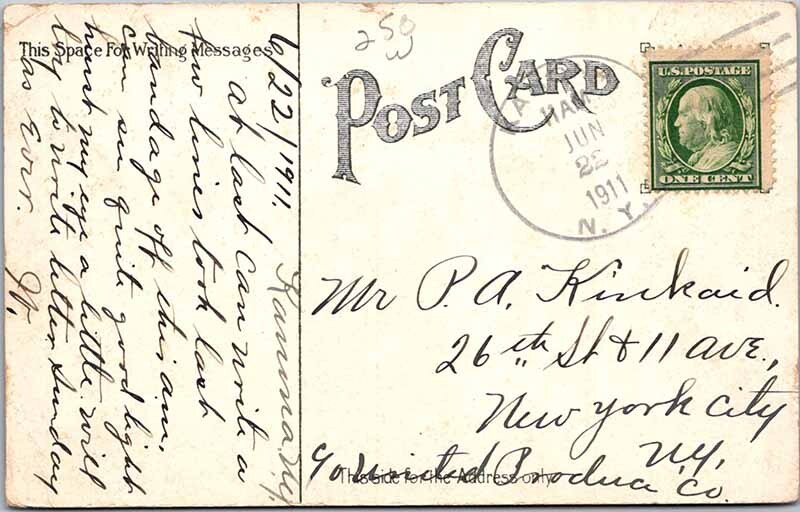 250
W
This Space For Writing Messages
POST CARD
U.S. POSTAGE
ONE CENT
JUN
22
1911
N. Y.
6/22/1911.
at last can write a
few lines took last
bandage off this am.
can see quite good light
hurt my eye a little will
try to write letter Sunday
as ever.
Mr P. A. Kinkaid.
26th St & 11 ave.,
New York City
N.Y.
c/o United Produce Co.
This side for the Address only